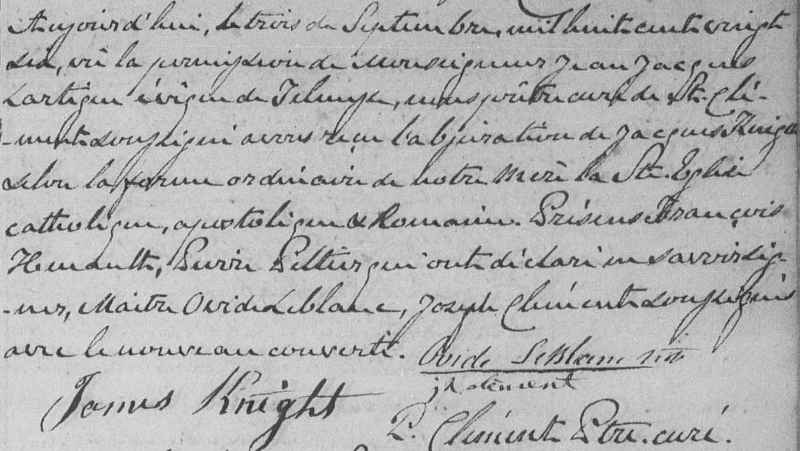 Aujourd'hui, le trois de Septembre, mil huit cent vingt
six, vû la permission de Monseigneur Jean Jacques
Lartigue évêque de Telmesse, nous prêtre curé de St. Clé-
-ment soussigné avons reçu l'abjuration de Jacques Knight
selon la forme ordinaire de notre Mère la Ste. Eglise
catholique, apostolique & Romaine. Présens François
Henault, Pierre Peltier qui ont déclaré ne savoir sig-
-ner, Maitre Ovide Leblanc, Joseph Clément soussignés
avec le nouveau converti. Ovide LeBlanc nt
js clément
James Knight
P. Clément Ptre. curé.